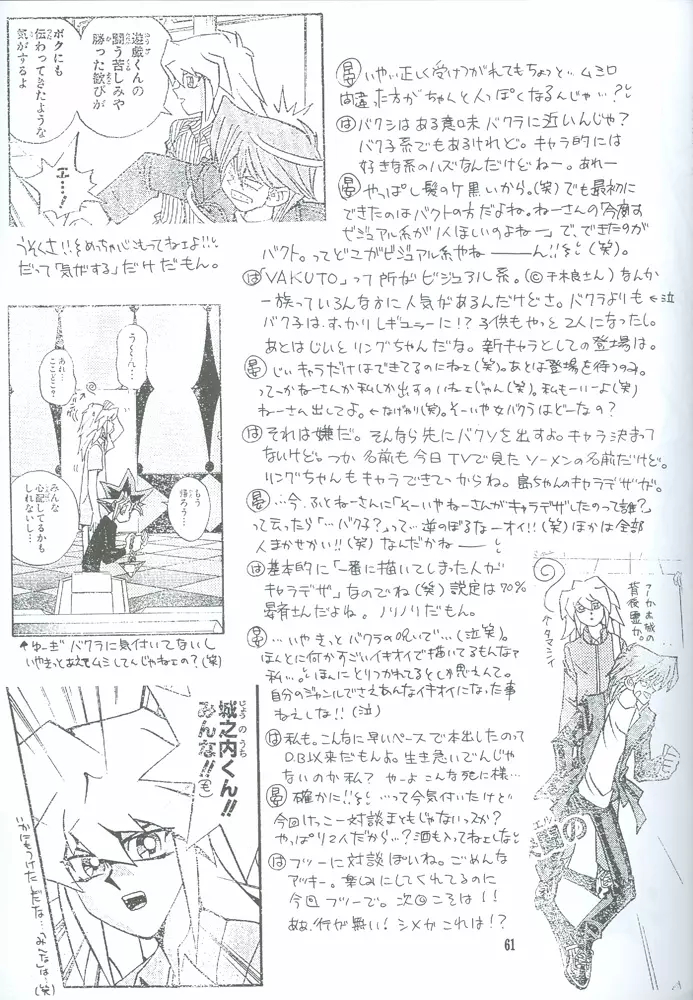 遊戯くんの
闘う苦しみや
勝った歓びが
ボクにも
伝わってきたような
気がするよ
うそくさ!!をめっちゃ心もってねェよ!!
だって「気がする」だけだもん。
う〜ん…
あれ…
ここどこ?
もう
帰ろう…
みんな
心配してるかも
しれないし…
↑ゆーぎ バクラに気付いてないし
いやきっとあえてムシしてんじゃねェの?(笑)
城之内くん!!
みんな!!
も
いかにもつけたしだな…「みんな」は…(笑)
晏 いやい正しく受けつがれてもちょっと… ムシロ
間違った方がちゃんと人っぽくなるんじゃ…?
は バクシはある意味バクラに近いんじゃ?
バクラ系でもあるけれど。キャラ的には
好きな系のハズなんだけどねー。あれー
晏 やっぱし髪のケ黒いから。(笑)でも最初に
できたのはバクトの方だよね。ねーさんの「今度す
ビジュアル系が1人ほしいのよねー」で、できたのが
バクト。ってどこがビジュアル系やねーーーん!!(笑)。
は「VAKUTO」って所がビジュアル系。(©千木良さん)なんか
一族っているんなかに人気があるんだけどさ。バクラよりも ←泣
バク子は、すっかりレギュラーに!?子供もやっと2人になったし。
あとはじいとリングちゃんだな。新キャラとしての登場は。
晏 じいキャラだけはできてるのにねェ(笑)。あとは登場を待つのみ。
ってーかねーさんか私しか出すのいねェじゃん(笑)。私もーいーよ(笑)
ねーさん出してよ。←なげやり(笑)。そーいや女バクラはどーなの?
は それは嫌だ。そんなら先にバクソを出すよ。キャラ決まって
ないけど。つか名前も今日TVで見たソーメンの名前だけど。
リングちゃんもキャラできてっからね。島ちゃんのキャラデザが。
晏 …今、ふとねーさんに「そーいやねーさんがキャラデザしたのって誰?」
って云ったら「…バク子?」って…逆のぼるなーオイ!!(笑)ほかは全部
人まかせかい!!(笑)なんだかねーーー
は 基本的に「一番に描いてしまった人が
キャラデザ」なのでね(笑)設定は70%
晏斉さんだよね。ノリノリだもん。
晏 …いやきっとバクラの呪いで…(泣笑)。
ほんとに何かすごいイキオイで描いてるもんなァ
私…。ほんにとりつかれてるとしか思えんて。
自分のジャンルでさえあんなイキオイになった事
ねえしな!!(泣)
は 私も。こんなに早いペースで本出したのって
D.B以来だもんよ。生き急いでんじゃ
ないのか私?やーよこんな死に様…
晏 確かに!!…って今気付いたけど
今回けっこー対談まともじゃないっスか?
やっぱり2人だから…?酒も入ってねェしな
は フツーに対談ぽいね。ごめんな
アッキー。楽しみにしてくれてるのに
今回フツーで。次回こそは!!
ああ、行が無い!シメがこれは!?
背後霊か。
61